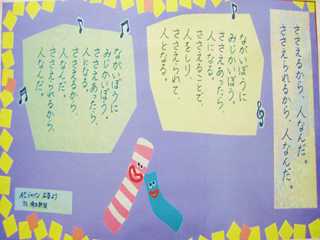 ささえるから、人なんだ。
ささえられるから、人なんだ。
ながいぼうに
みじかいぼう、
ささえあったら、
人になる。
ささえることで、
人をしり、
ささえられて、
人となる。
ながいぼうに
みじかいぼう、
ささえあったら、
人になる。
ささえるから、
人なんだ。
ささえられるから、
人なんだ。